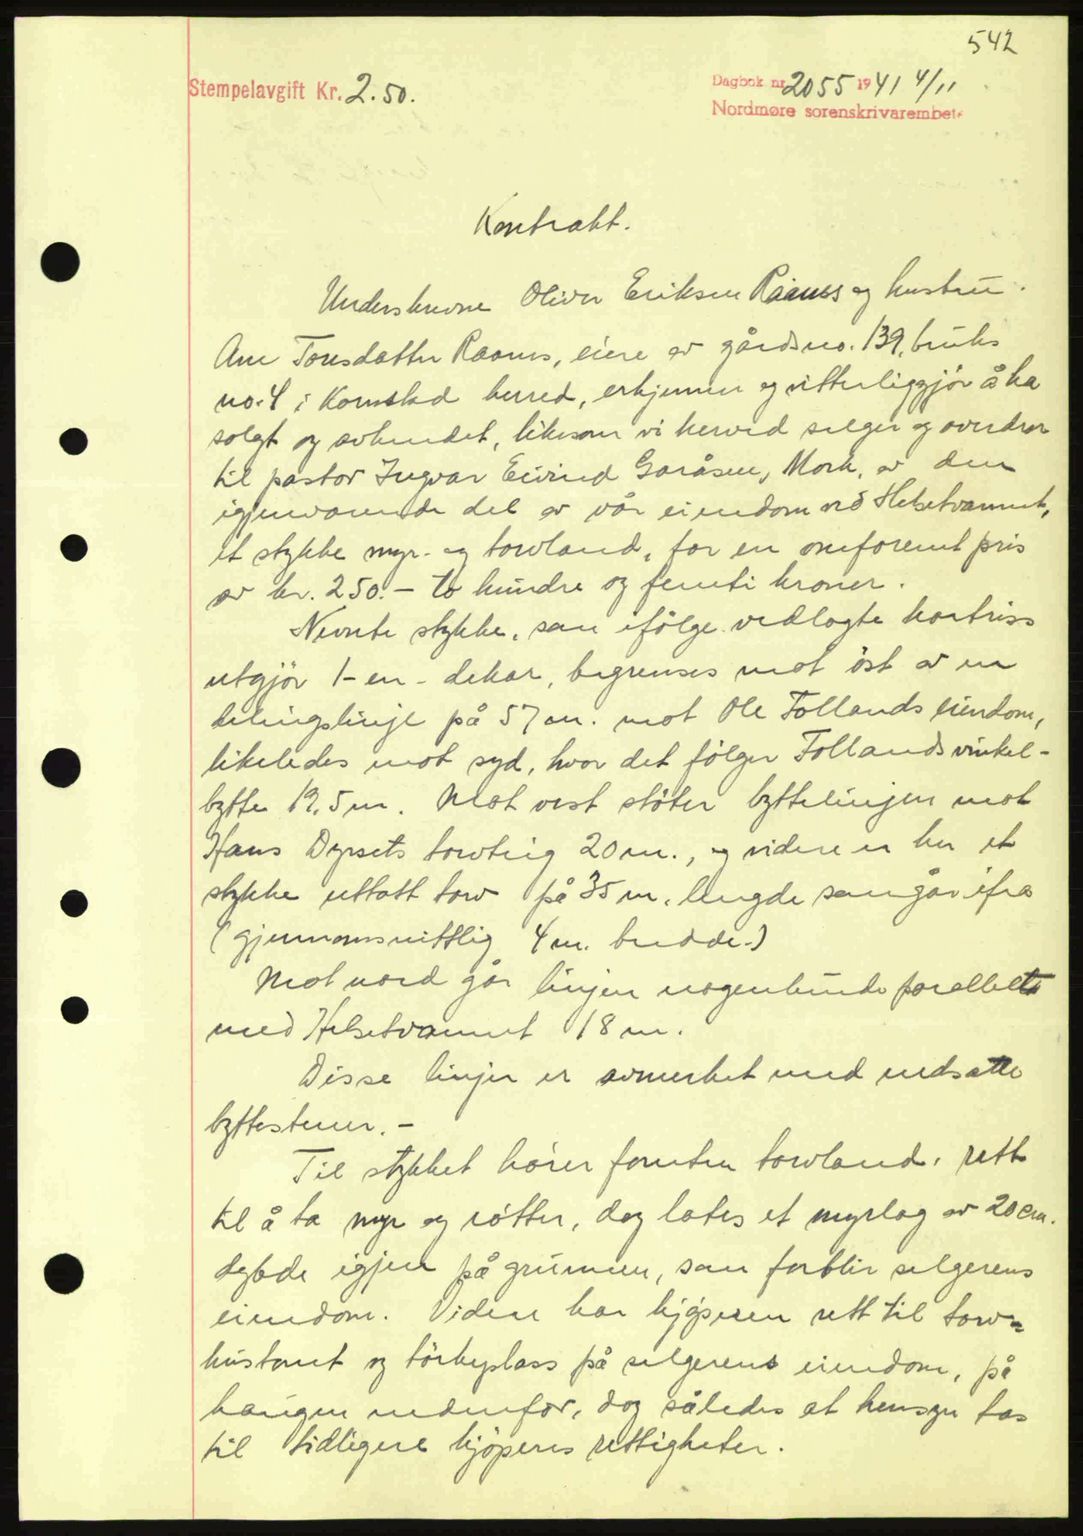 542
Stempelavgift Kr. 2.50.
Dagbok nr. 2055 1941 4/11
Nordmøre sorenskrivarembete
Kontrakt.
Underskrevne Oliver Eriksen Raanes og hustru
Ane Tousdatter Raanes, eiere av gårdsno. 139, bruks
no. 4 i Kornstad herred, erkjenner og vitterliggjör å ha
solgt og avhendet, liksom vi herved selger og overdrar
til pastor Ingvar Eivind Garåsen, Mork, av den
igjenværende del av vår eiendom ved Helsetvannet,
et stykke myr- og torvland, for en omforent pris
av kr. 250.- to hundre og femti kroner.
Nevnte stykke, som ifölge vedlagte kartriss
utgjör 1-en- dekar, begrenses mot öst av en
delingslinje på 57 m. mot Ole Follands eiendom,
likeledes mot syd, hvor det fölger Follands vinkel-
bytte 19,5 m. Mot vest stöter byttelinjen mot
Hans Dyrsets torvteig 20 m., og videre er her et
stykke uttatt torv på 35 m. lengde som går ifra
(gjennomsnittlig 4 m. bredde.)
Mot nord går linjen nogenlunde parallelt
med Helsetvannet 18 m.
Disse linjer er avmerket med nedsatte
byttestener. -
Til stykket hörer foruten torvland, rett
til å ta myr og rötter, dog lates et myrlag av 20 cm.
dybde igjen på grunnen, som forblir selgerens
eiendom. Videre har kjöperen rett til torv=
hustomt og törkeplass på selgerens eiendom, på
haugen nedenfor, dog således at hensyn tas
til tidligere kjöperes rettigheter.